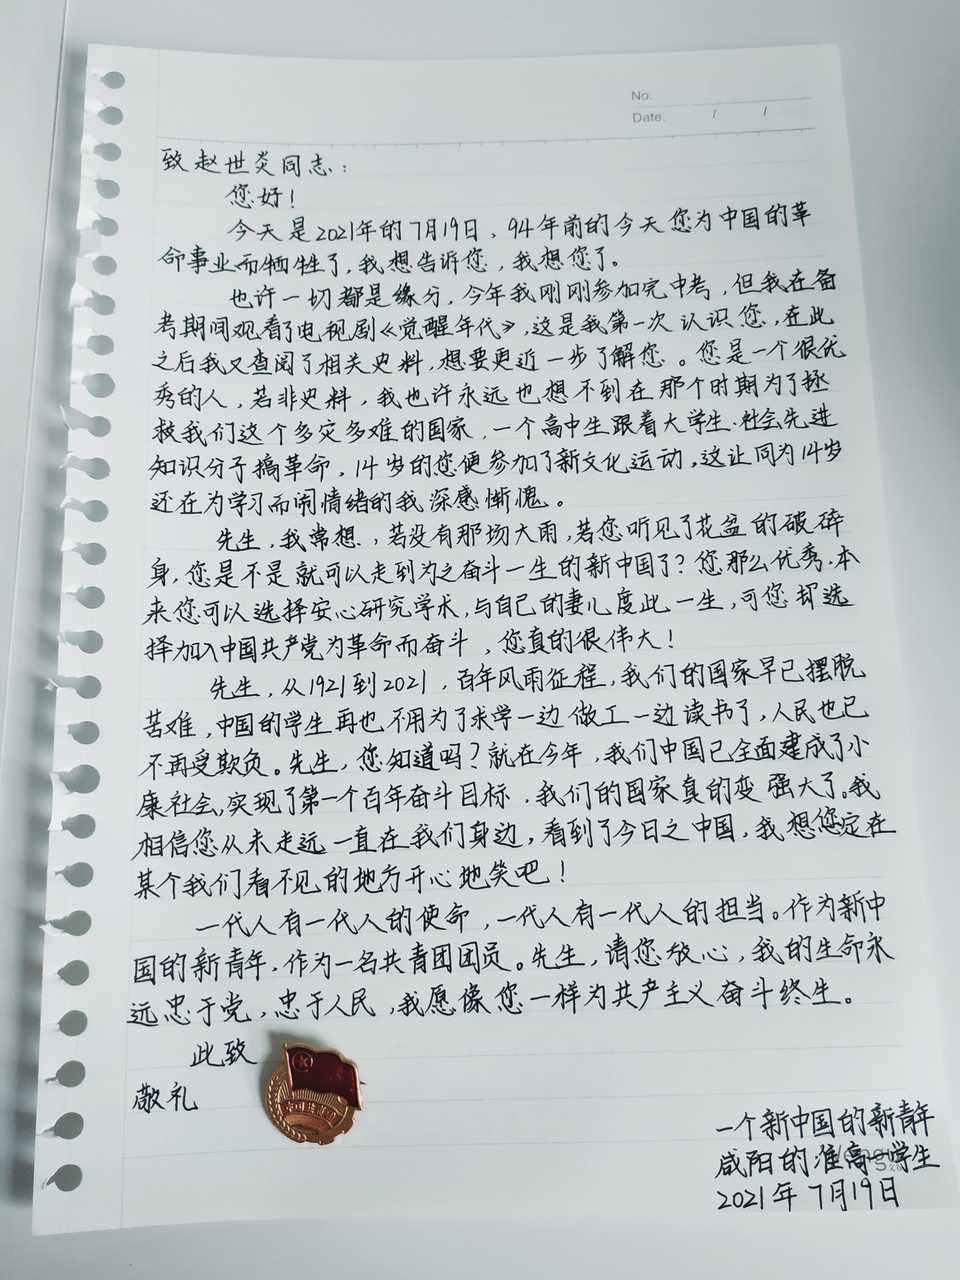 No.
Date. / /
致赵世炎同志：
您好！
今天是2021年的7月19日，94年前的今天您为中国的革
命事业而牺牲了，我想告诉您，我想您了。
也许一切都是缘分，今年我刚刚参加完中考，但我在备
考期间观看了电视剧《觉醒年代》，这是我第一次认识您，在此
之后我又查阅了相关史料，想要更近一步了解您。您是一个很优
秀的人，若非史料，我也许永远也想不到在那个时期为了拯
救我们这个多灾多难的国家，一个高中生跟着大学生、社会先进
知识分子搞革命，14岁的您便参加了新文化运动，这让同为14岁
还在为学习而闹情绪的我深感惭愧。
先生，我常想，若没有那场大雨，若您听见了花盆的破碎
身，您是不是就可以走到为之奋斗一生的新中国了？您那么优秀，本
来您可以选择安心研究学术，与自己的妻儿度此一生，可您却选
择加入中国共产党为革命而奋斗，您真的很伟大！
先生，从1921到2021，百年风雨征程，我们的国家早已摆脱
苦难，中国的学生再也不用为了求学一边做工一边读书了，人民也已
不再受欺负。先生，您知道吗？就在今年，我们中国已全面建成了小
康社会，实现了第一个百年奋斗目标，我们的国家真的变强大了。我
相信您从未走远一直在我们身边，看到了今日之中国，我想您定在
某个我们看不见的地方开心地笑吧！
一代人有一代人的使命，一代人有一代人的担当。作为新中
国的新青年，作为一名共青团团员。先生，请您放心，我的生命永
远忠于党，忠于人民，我愿像您一样为共产主义奋斗终生。
此致
敬礼
中国共青团
一个新中国的新青年
咸阳的准高一学生
2021年7月19日